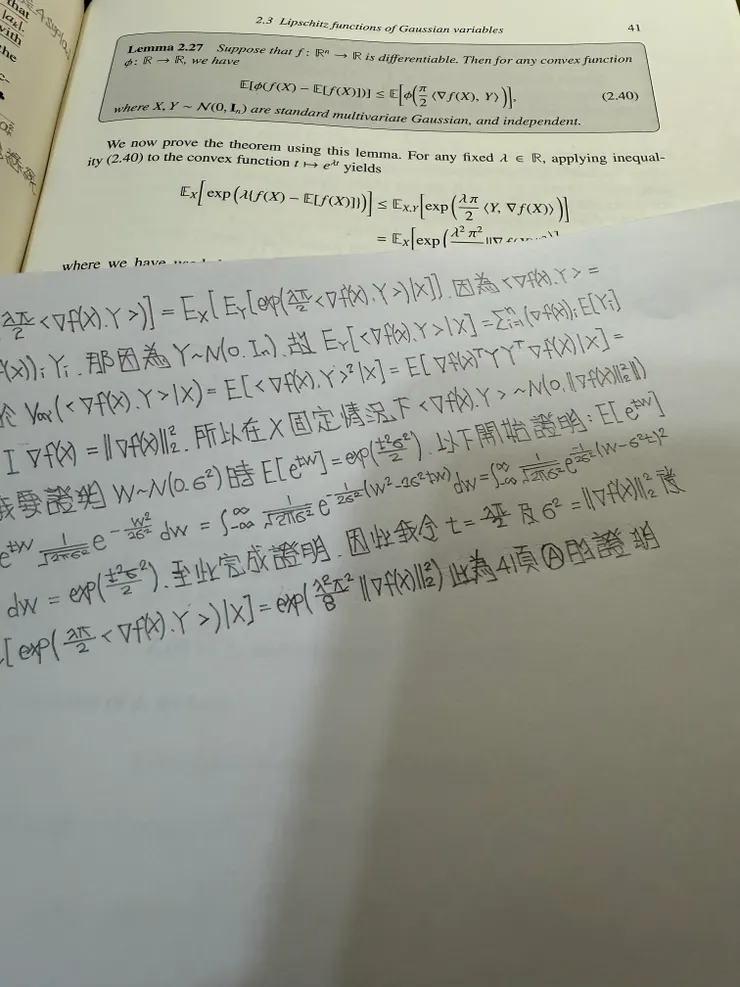 2.3 Lipschitz functions of Gaussian variables 41
that
|aₖ|.
with
the
c-
Lemma 2.27 Suppose that f : ℝⁿ → ℝ is differentiable. Then for any convex function
ϕ : ℝ → ℝ, we have
𝔼[ϕ(f(X) − 𝔼[f(X)])] ≤ 𝔼[ϕ(π/2 ⟨∇f(X), Y⟩)], (2.40)
where X, Y ∼ N(0, Iₙ) are standard multivariate Gaussian, and independent.
We now prove the theorem using this lemma. For any fixed λ ∈ ℝ, applying inequal-
ity (2.40) to the convex function t ↦ e^{λt} yields
𝔼_X[exp(λ{f(X) − 𝔼[f(X)]})] ≤ 𝔼_{X,Y}[exp(λπ/2 ⟨Y, ∇f(X)⟩)]
= 𝔼_X[exp(λ²π²
where we have
λπ/2 <∇f(X).Y>)] = E_X[E_Y[exp(λπ/2 <∇f(X).Y>)|X]]. 因為 <∇f(X).Y> =
f(X))ᵢ Yᵢ. 那因為 Y~N(0.Iₙ). 故 E_Y[<∇f(X).Y>|X] = Σⁿᵢ₌₁(∇f(X))ᵢ E[Yᵢ]
Var(<∇f(X).Y>|X) = E[<∇f(X).Y>²|X] = E[∇f(X)ᵀYYᵀ∇f(X)|X] =
I ∇f(X) = ||∇f(X)||₂². 所以在X固定情況下 <∇f(X).Y> ~ N(0.||∇f(X)||₂²)
我要證明 W~N(0.6²) 時 E[e^{tW}] = exp(t²6²/2). 以下開始證明: E[e^{tW}]
e^{tW} 1/√(2π6²) e^{-W²/26²} dw = ∫_{-∞}^{∞} 1/√(2π6²) e^{-1/26²(W²-26²tW)} dw = ∫_{-∞}^{∞} 1/√(2π6²) e^{-1/26²(W-6²t)²}
dw = exp(t²6²/2). 至此完成證明. 因此我令 t = λπ/2 及 6² = ||∇f(X)||₂² 後
[exp(λπ/2 <∇f(X).Y>)|X] = exp(λ²π²/8 ||∇f(X)||₂²) 此為41頁Ⓐ的證明